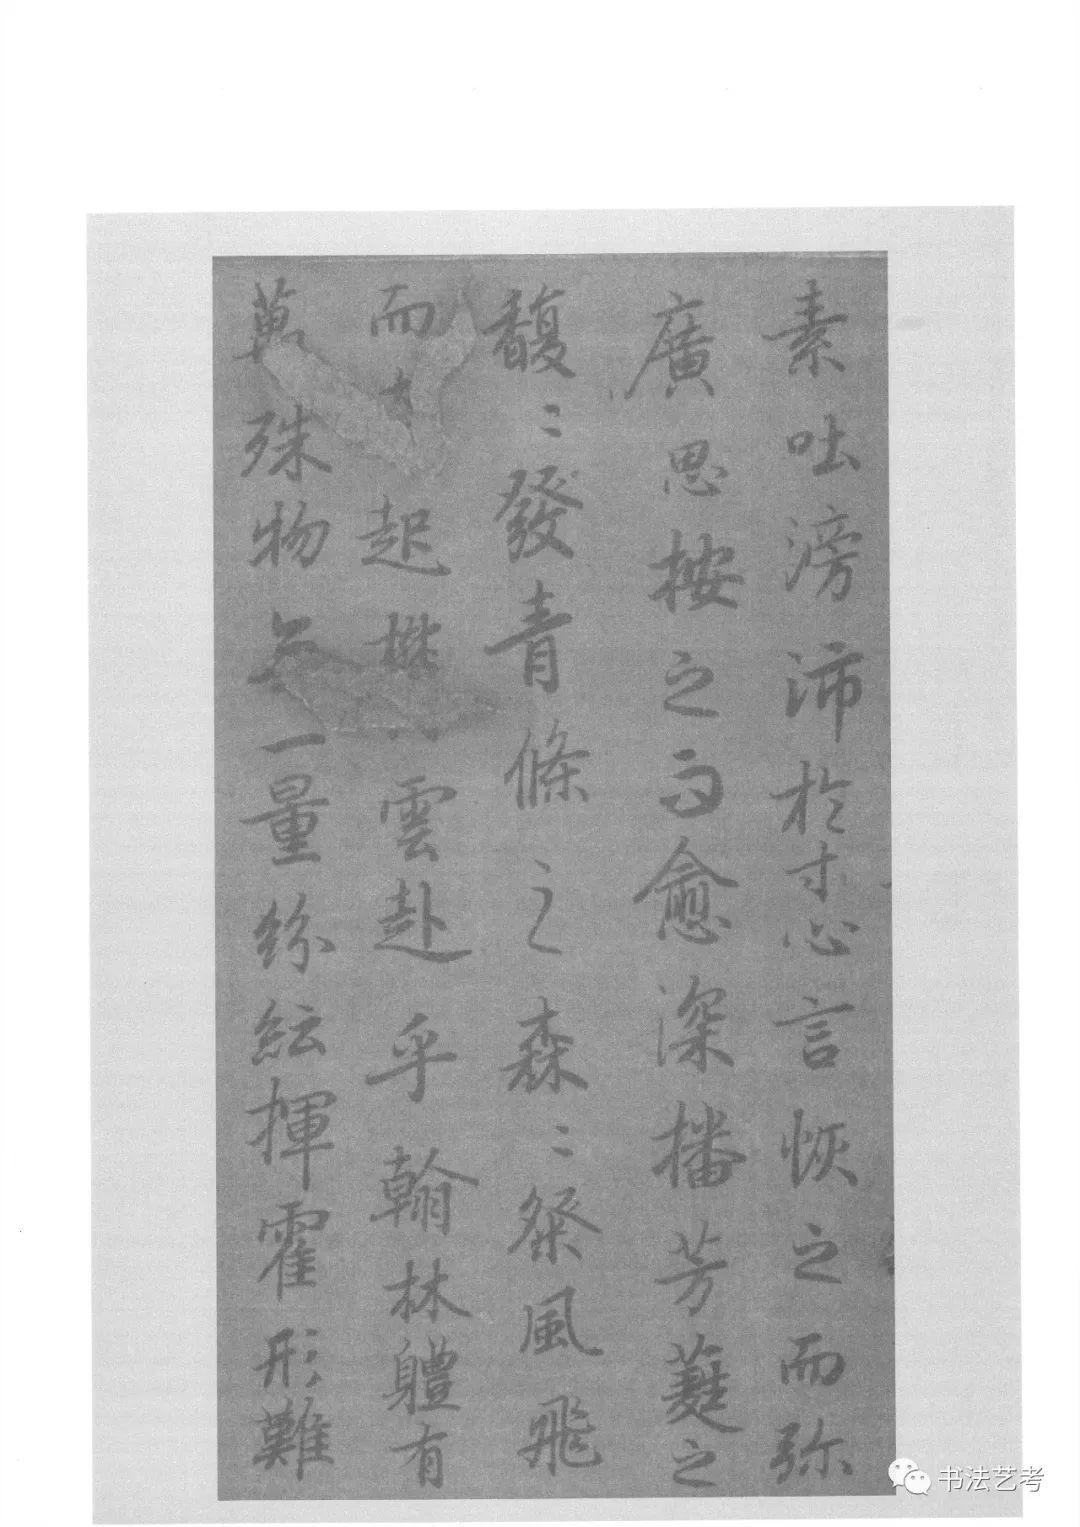 素吐滂沛於寸心言恢之而弥
廣思按之而愈深播芳蕤之
馥〻發青條之森〻粲風飛
而起欝雲赴乎翰林軆有
萬殊物一量紛紜揮霍形難
书法艺考